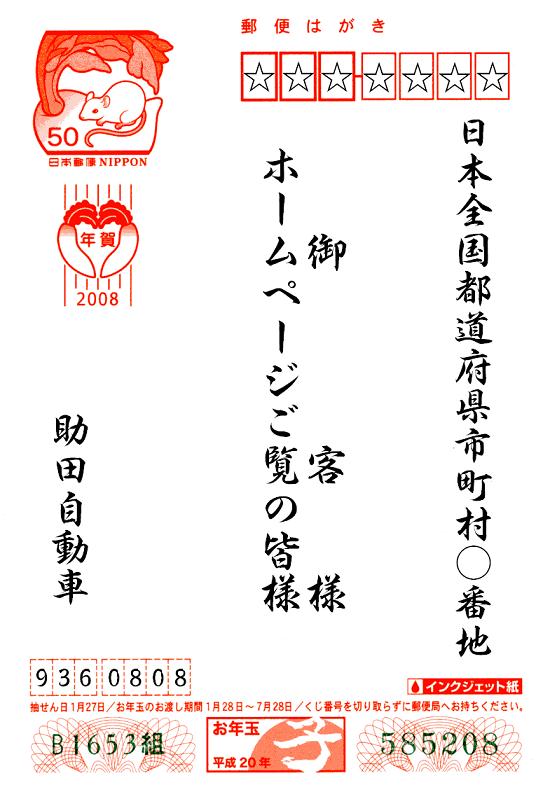 郵便はがき
☆☆☆-☆☆☆☆
50
日本郵便 NIPPON
年賀
2008
日本全国都道府県市町村〇番地
御客様
ホームページご覧の皆様
助田自動車
9360808
インクジェット紙
抽せん日1月27日/お年玉のお渡し期間1月28日~7月28日/くじ番号を切り取らずに郵便局へお持ちください。
B1653組
お年玉
子
平成20年
585208